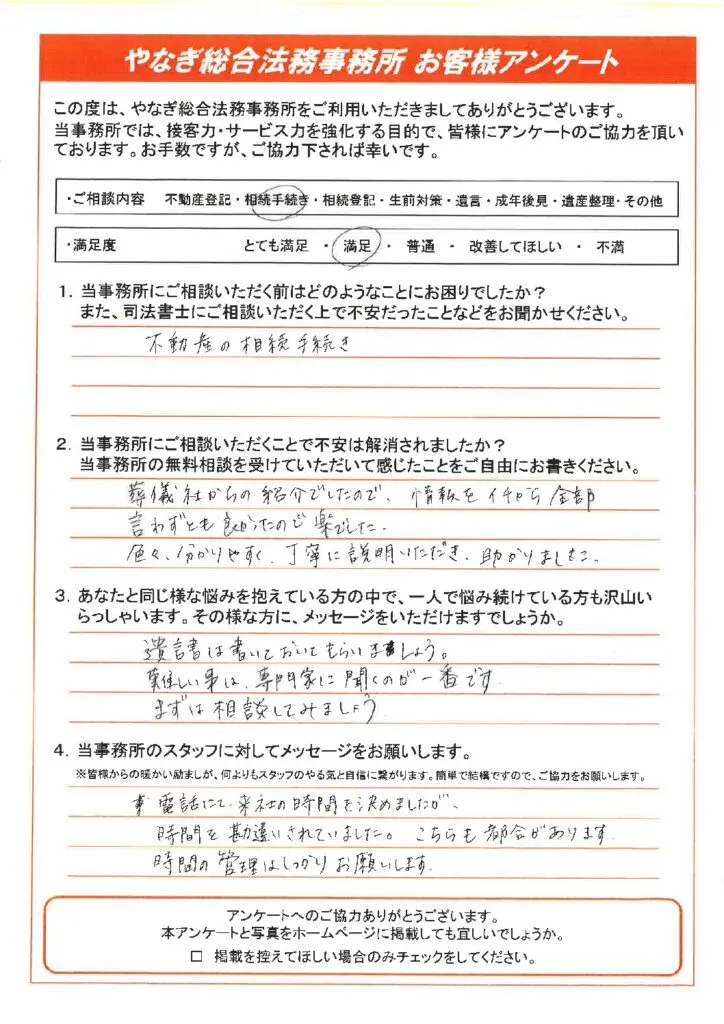 やなぎ総合法務事務所 お客様アンケート
この度は、やなぎ総合法務事務所をご利用いただきましてありがとうございます。
当事務所では、接客力・サービス力を強化する目的で、皆様にアンケートのご協力を頂い
ております。お手数ですが、ご協力下されば幸いです。
・ご相談内容 不動産登記・相続手続き・相続登記・生前対策・遺言・成年後見・遺産整理・その他
・満足度 とても満足 ・ 満足 ・ 普通 ・ 改善してほしい ・ 不満
1. 当事務所にご相談いただく前はどのようなことにお困りでしたか？
また、司法書士にご相談いただく上で不安だったことなどをお聞かせください。
不動産の相続手続き
2. 当事務所にご相談いただくことで不安は解消されましたか？
当事務所の無料相談を受けていただいて感じたことをご自由にお書きください。
葬儀社からの紹介でしたので、情報をイチから全部
言わずとも良かったので楽でした。
色々、分かりやすく、丁寧に説明いただき、助かりました。
3. あなたと同じ様な悩みを抱えている方の中で、一人で悩み続けている方も沢山い
らっしゃいます。その様な方に、メッセージをいただけますでしょうか。
遺言書は書いておいてもらいましょう。
難しい事は、専門家に聞くのが一番です
まずは相談してみましょう
4. 当事務所のスタッフに対してメッセージをお願いします。
※皆様からの暖かい励ましが、何よりもスタッフのやる気と自信に繋がります。簡単で結構ですので、ご協力をお願いします。
電話にて、来社の時間を決めましたが、
時間を勘違いされていました。こちらも都合があります
時間の管理はしっかりお願いします。
アンケートへのご協力ありがとうございます。
本アンケートと写真をホームページに掲載しても宜しいでしょうか。
□ 掲載を控えてほしい場合のみチェックをしてください。